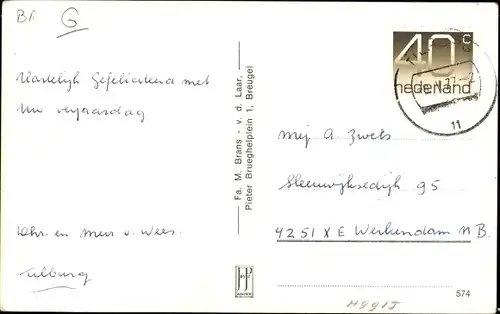 BR G
Hartelijk Gefeliciteerd met
Uw verjaardag
Dhr. en Mevr v. Wees.
Tilburg
Fa. M. Brans - v. d. Laar,
Pieter Brueghelplein 1, Breugel
40 c
nederland
11
mej A Zwets
Sleeuwijksedijk 95
4251 X E Werkendam N B.
574